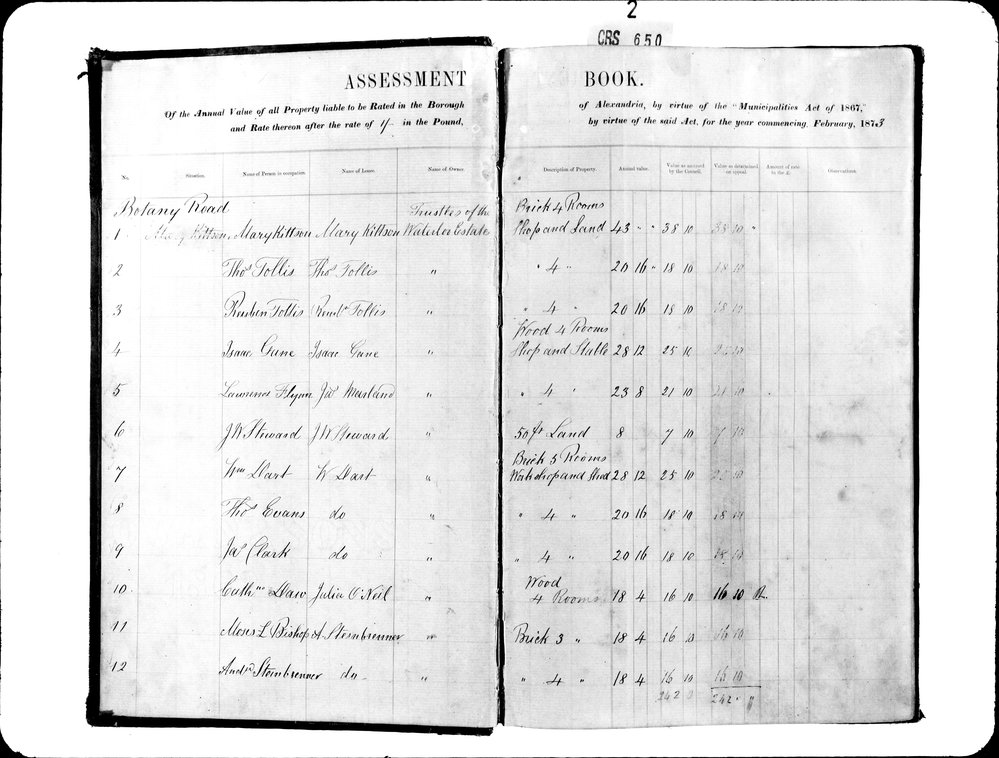 2
CRS 650
ASSESSMENT BOOK.
Of the Annual Value of all Property liable to be Rated in the Borough of Alexandria, by virtue of the "Municipalities Act of 1867,"
and Rate thereon after the rate of 1/- in the Pound, by virtue of the said Act, for the year commencing February, 1873
No. Situation. Name of Person in occupation. Name of Lessee. Name of Owner. Description of Property. Annual value. Value as assessed by the Council. Value as determined on appeal. Amount of rate in the £. Observations.
Botany Road Trustees of the Brick 4 Rooms
1 Mary Kittson Mary Kittson Mary Kittson Estate Shop and Land 43 " " 38 10 38 10 "
2 Thos Tollis Thos Tollis " " 4 " 20 16 " 18 10 18 10
3 Reuben Tollis Reubn Tollis " " 4 " 20 16 18 10 18 10
Wood 4 Rooms
4 Isaac Gane Isaac Gane " Shop and Stable 28 12 25 10 25 10
5 Lawrence Flynn Jas Masland " " 4 " 23 8 21 10 21 10
6 J W Steward J W Steward " 50 ft Land 8 7 10 7 10
Brick 5 Rooms
7 Wm Dart W Dart " Workshop and Shed 28 12 25 10 25 10
8 Thos Evans do " " 4 " 20 16 18 10 18 10
9 Jas Clark do " " 4 " 20 16 18 10 18 10
Wood
10 Cathne Daw Julia O'Neil " 4 Rooms 18 4 16 10 16 10
11 Moses L Bishop A. Steinbrenner " Brick 3 " 18 4 16 10 16 10
12 Andw Steinbrenner do " " 4 " 18 4 16 10 16 10
242 0 242 " "